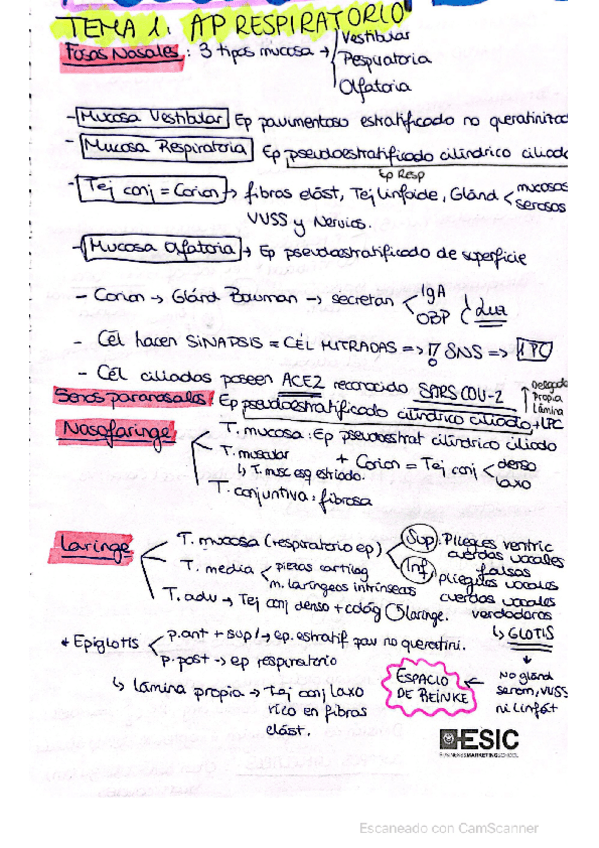 TEMA 1: AP RESPIRATORIO
Fosas Nasales: 3 tipos mucosa → Vestibular
Respiratoria
Olfatoria
- Mucosa Vestibular Ep pavimentoso estratificado no queratinizad
- Mucosa Respiratoria Ep pseudoestratificado cilíndrico ciliado
Ep Resp
- Tej conj = Corion → fibras elást, Tej linfoide, Glánd < mucosas
serosas
VVSS y Nervios.
- Mucosa Olfatoria → Ep pseudoestratificado de superficie
- Corion → Glánd Bowman → secretan < IgA
OBP
- Cél hacen SINAPSIS = CÉL MITRADAS => SNS => LPC
- Cél ciliadas poseen ACE2 reconocido SARS COU-2
Delgada
Propia
Lámina
Senos paranasales: Ep pseudoestratificado cilíndrico ciliado + LPC
Nasofaringe
T. mucosa: Ep pseudoestrat cilíndrico ciliado
+ Corion = Tej conj < denso
laxo
T. muscular
↳ T. musc esq estriado.
T. conjuntiva: fibrosa
Laringe
T. mucosa (respiratorio ep) < Sup. Pliegues ventric
cuerdas vocales
falsas
Inf. pliegues vocales
cuerdas vocales
verdaderas
↳ GLOTIS
T. media < piezas cartilag
m. laríngeos intrínsecas
T. adv → Tej conj denso + colág laringe.
* Epiglotis < p. ant + sup → ep. estratif pav no queratini.
p. post → ep respiratorio
↳ lámina propia → Tej conj laxo
rico en fibras
elást.
ESPACIO
DE REINKE
←
No glánd
serom, VVSS
ni linfát
ESIC
BUSINESS&MARKETINGSCHOOL
Escaneado con CamScanner